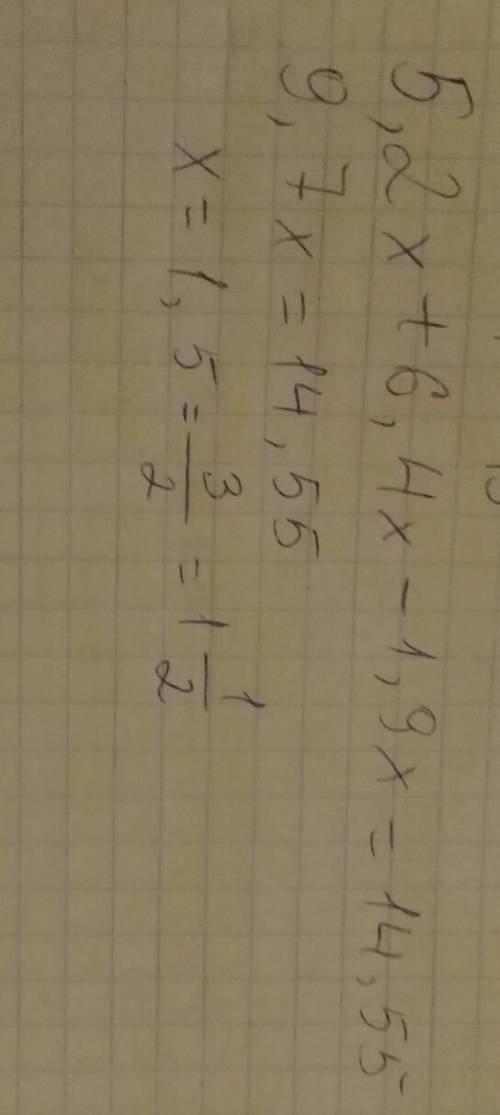 5,2x + 6,4x - 1,9x = 14,55
9,7x = 14,55
x = 1,5 = 3/2 = 1 1/2